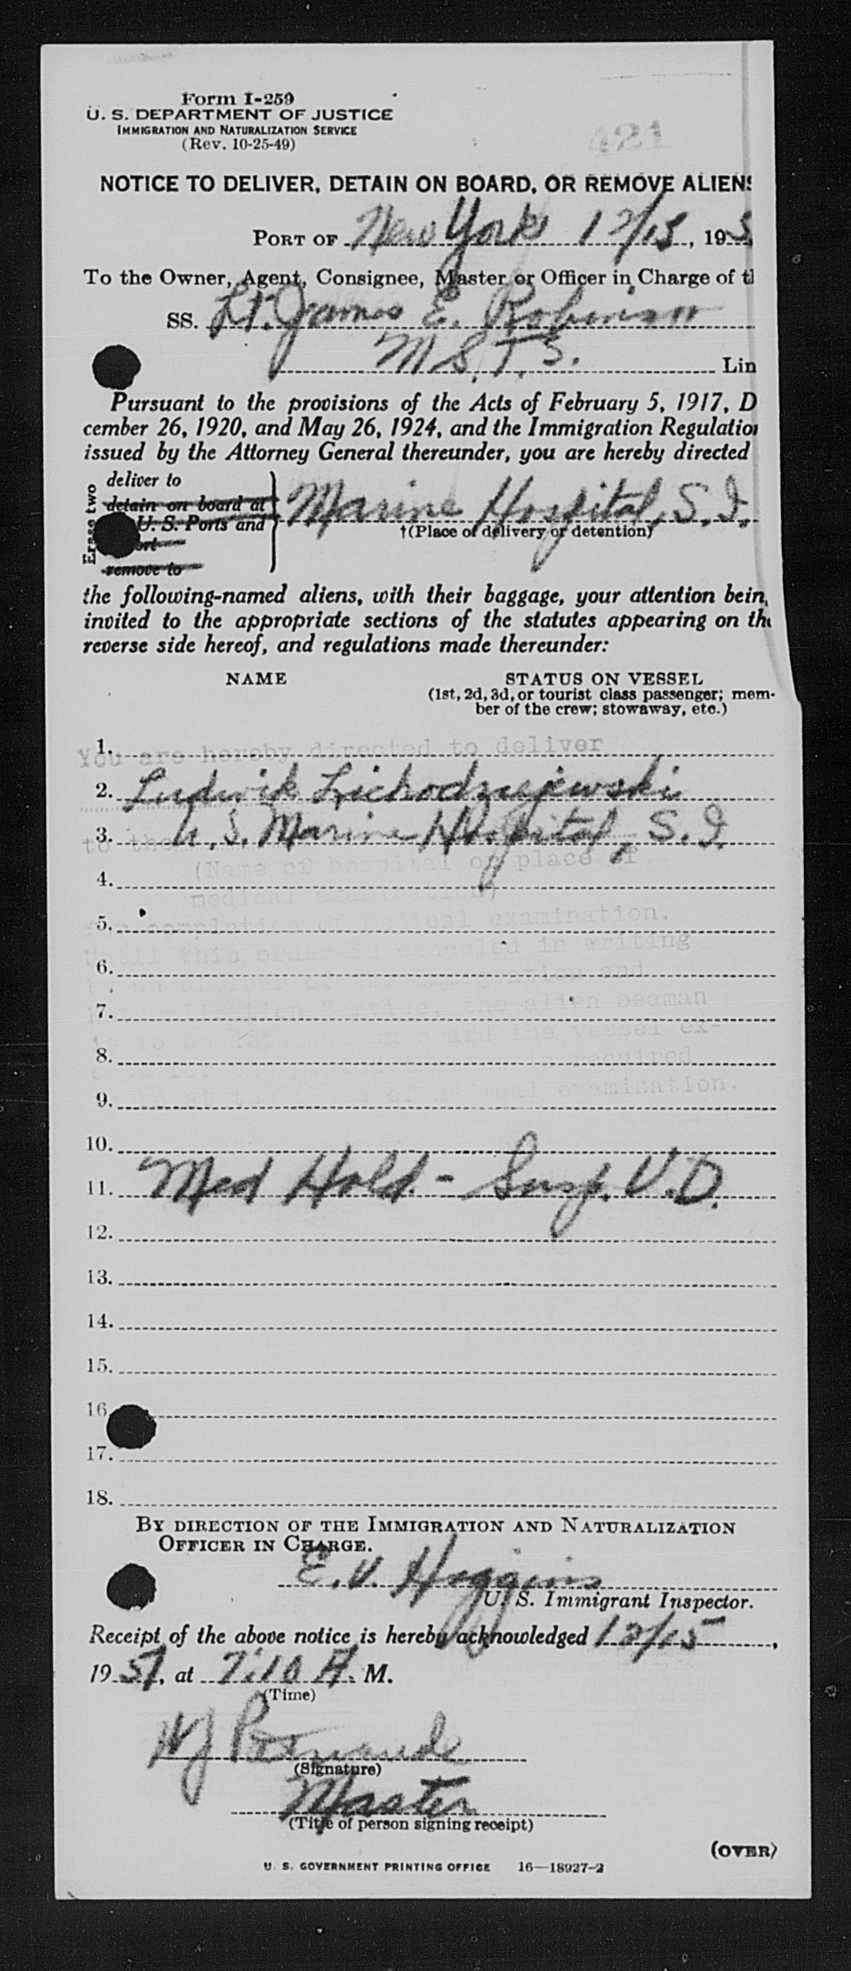 Form I-259
U. S. DEPARTMENT OF JUSTICE
IMMIGRATION AND NATURALIZATION SERVICE
(Rev. 10-25-49)
421
NOTICE TO DELIVER, DETAIN ON BOARD, OR REMOVE ALIENS
PORT OF New York 12/15, 195
To the Owner, Agent, Consignee, Master or Officer in Charge of t
SS. Lt. James E. Robinson
M.S.T.S. Lin
Pursuant to the provisions of the Acts of February 5, 1917, D
cember 26, 1920, and May 26, 1924, and the Immigration Regulation
issued by the Attorney General thereunder, you are hereby directed
Erase two
deliver to
detain on board at
U. S. Ports and
remove to
Marine Hospital, S. I.
†(Place of delivery or detention)
the following-named aliens, with their baggage, your attention bein
invited to the appropriate sections of the statutes appearing on th
reverse side hereof, and regulations made thereunder:
NAME STATUS ON VESSEL
(1st, 2d, 3d, or tourist class passenger; mem-
ber of the crew; stowaway, etc.)
1. You are hereby directed to deliver
2. Ludwik Lichodzujewski
3. U. S. Marine Hospital, S. I.
to the
(Name of hospital or place of
4.
medical examination)
5.
for completion of medical examination.
Until this order is canceled in writing
6.
7.
the alien seaman
8.
the vessel ex-
required
9.
examination.
10.
11. Med Hold. - Susp. V.D.
12.
13.
14.
15.
16
17.
18.
BY DIRECTION OF THE IMMIGRATION AND NATURALIZATION
OFFICER IN CHARGE.
E. V. Higgins
U. S. Immigrant Inspector.
Receipt of the above notice is hereby acknowledged 12/15,
1951, at 7:10 A. M.
(Time)
(Signature)
Master
(Title of person signing receipt)
(OVER)
U. S. GOVERNMENT PRINTING OFFICE 16—18927-2